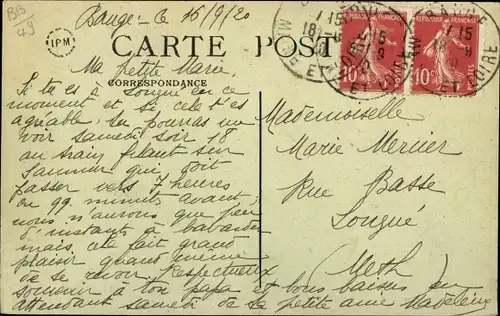 B/B
49
Baugé - le 16/9/20
IPM
CARTE POSTALE
CORRESPONDANCE
Ma petite Marie,
Si tu es à Longué en ce
moment et si cela t'es
agréable tu pourras me
voir samedi soir 18
au train filant sur
Saumur qui doit
passer vers 7 heures
ou 99 minutes avant;
nous n'aurons que peu
d'instants à babarder
mais, cela fait grand
plaisir quand même
de se revoir. Respectueux
souvenir à ton papa et bons baisers en
attendant samedi de la petite amie Madeleine
Mademoiselle
Marie Mercier
Rue Basse
Longué
(Meth)
MAINE ET LOIRE
REPUBLIQUE FRANÇAISE
10
POSTES
REPUBLIQUE FRANÇAISE
10
POSTES
MAINE ET LOIRE